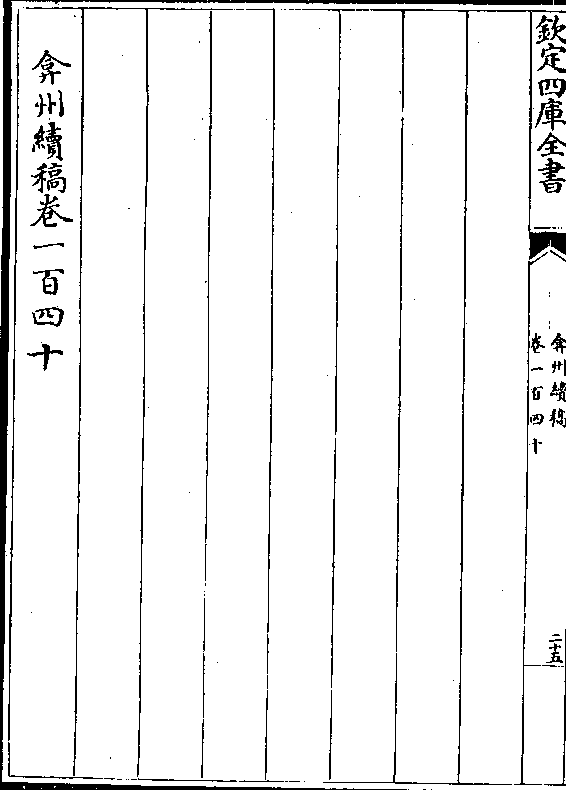 欽定四庫全書
弇州續稿
卷一百四十
二十五
弇州續稿卷一百四十